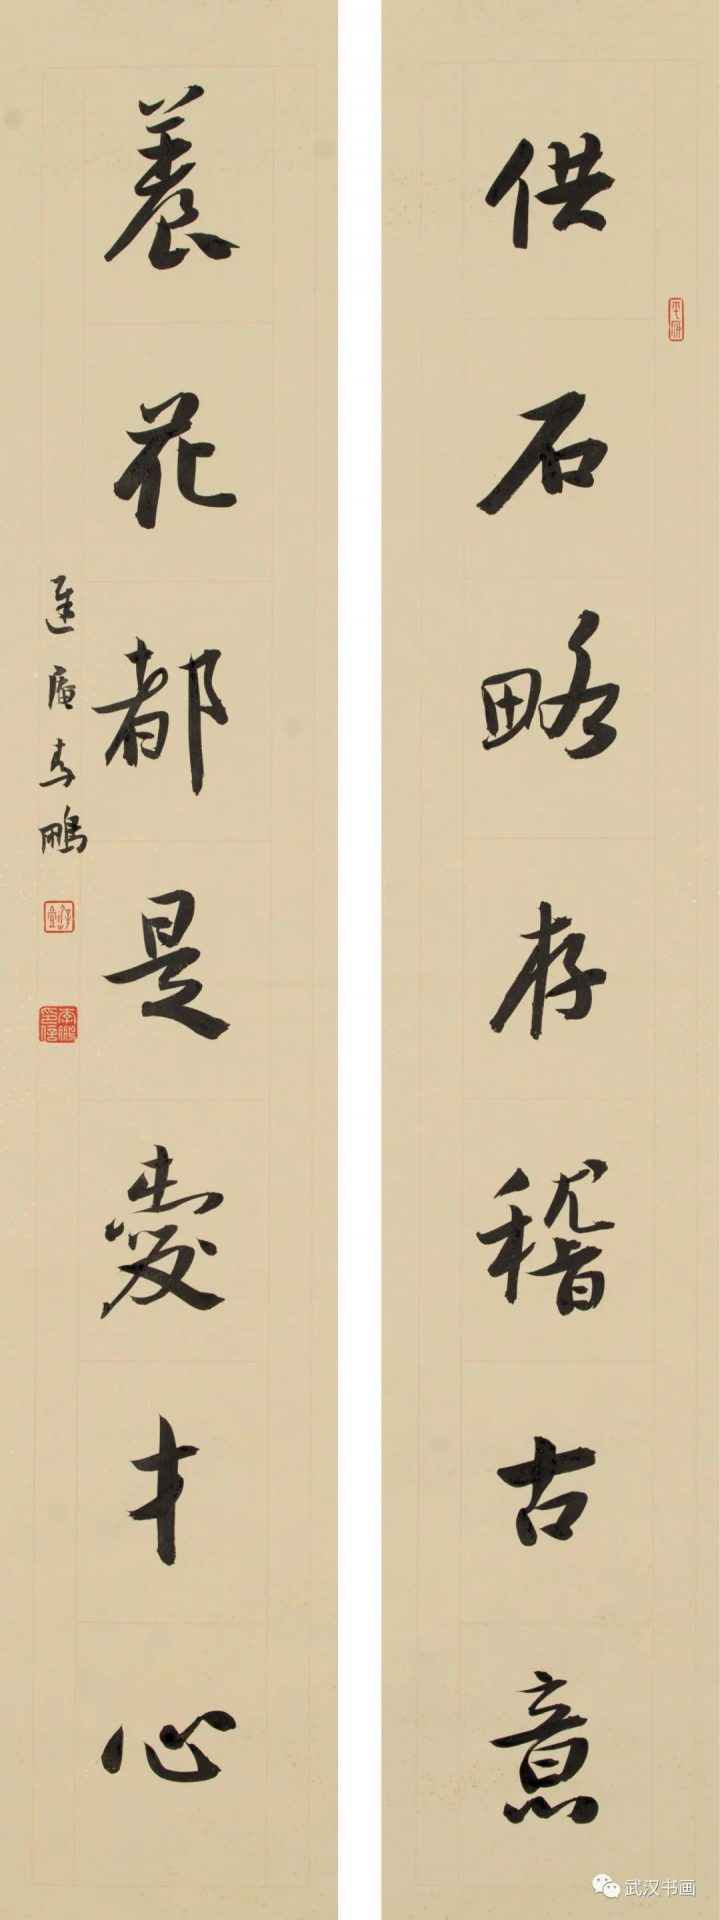 供石略存稽古意
養花都是愛才心
庵李鵬
李鵬印信
武汉书画